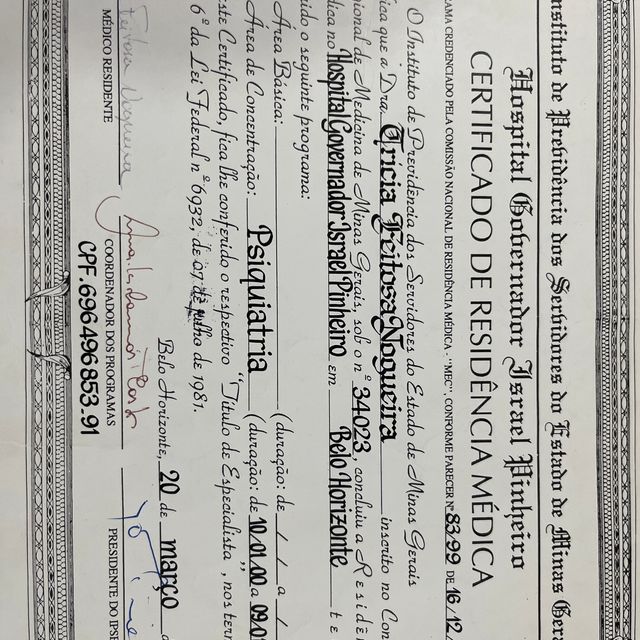 Instituto de Previdência dos Servidores do Estado de Minas Ger
Hospital Governador Israel Pinheiro
CERTIFICADO DE RESIDÊNCIA MÉDICA
AMA CREDENCIADO PELA COMISSÃO NACIONAL DE RESIDÊNCIA MÉDICA - "MEC", CONFORME PARECER Nº 83/99 DE 16/12/
O Instituto de Previdência dos Servidores do Estado de Minas Gerais
fica que a Dra. Tricia Feitosa Nogueira inscrito no Con
ional de Medicina de Minas Gerais, sob o nº 34023, concluiu a Residê
dica no Hospital Governador Israel Pinheiro em Belo Horizonte te
ido o seguinte programa:
Área Básica: (duração: de / / a /
Área de Concentração: Psiquiatria (duração: de 10.01.00 a 09.0
ste Certificado, fica lhe conferido o respectivo "Título de Especialista", nos term
6º da Lei Federal nº 6932, de 07 de julho de 1981.
Belo Horizonte, 20 de março
Feitosa Nogueira
MÉDICO RESIDENTE
COORDENADOR DOS PROGRAMAS
PRESIDENTE DO IPSE
CPF.696496853.91